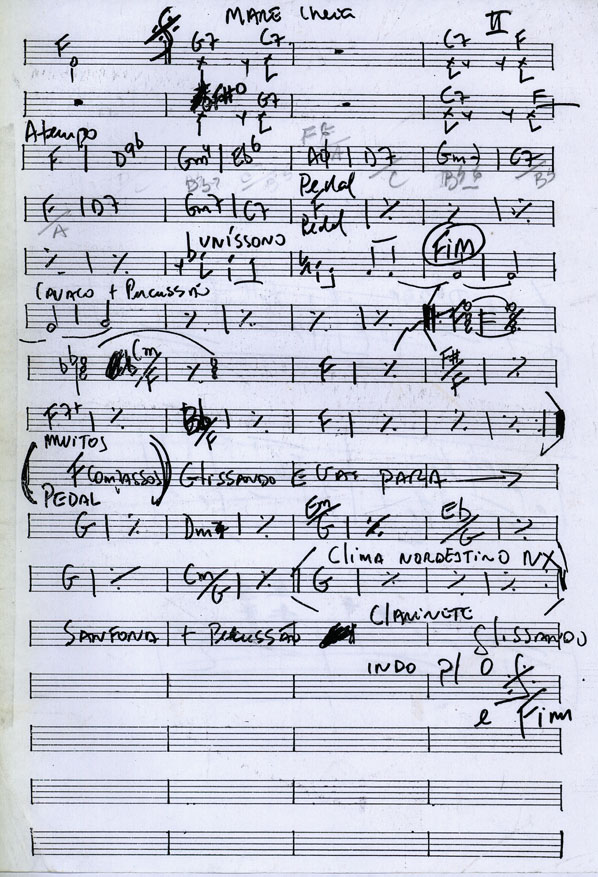 MARÉ Cheia II
F G7 C7 C7 F
F#º G7 C7 F
A tempo
F D9b Gm7 Eb6 Aø D7 Gm7 C7
C
Pedal
F/A D7 Gm7 C7 F
Pedal
UNÍSSONO FIM
CAVACO + Percussão
bb Cm/F F F#/F
F7+ Bb/F F
MUITOS
F (COMPASSOS) GLISSANDO E VAI PARA
PEDAL
G Dm7 Em/G Eb/G
CLIMA NORDESTINO NX
G Cm/G G
CLARINETE
SANFONA + Percussão GLISSANDO
INDO p/ O
e Fim